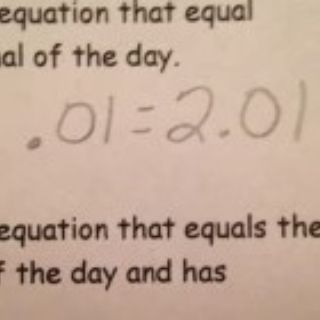 equation that equal
al of the day.
.01=2.01
equation that equals the
f the day and has